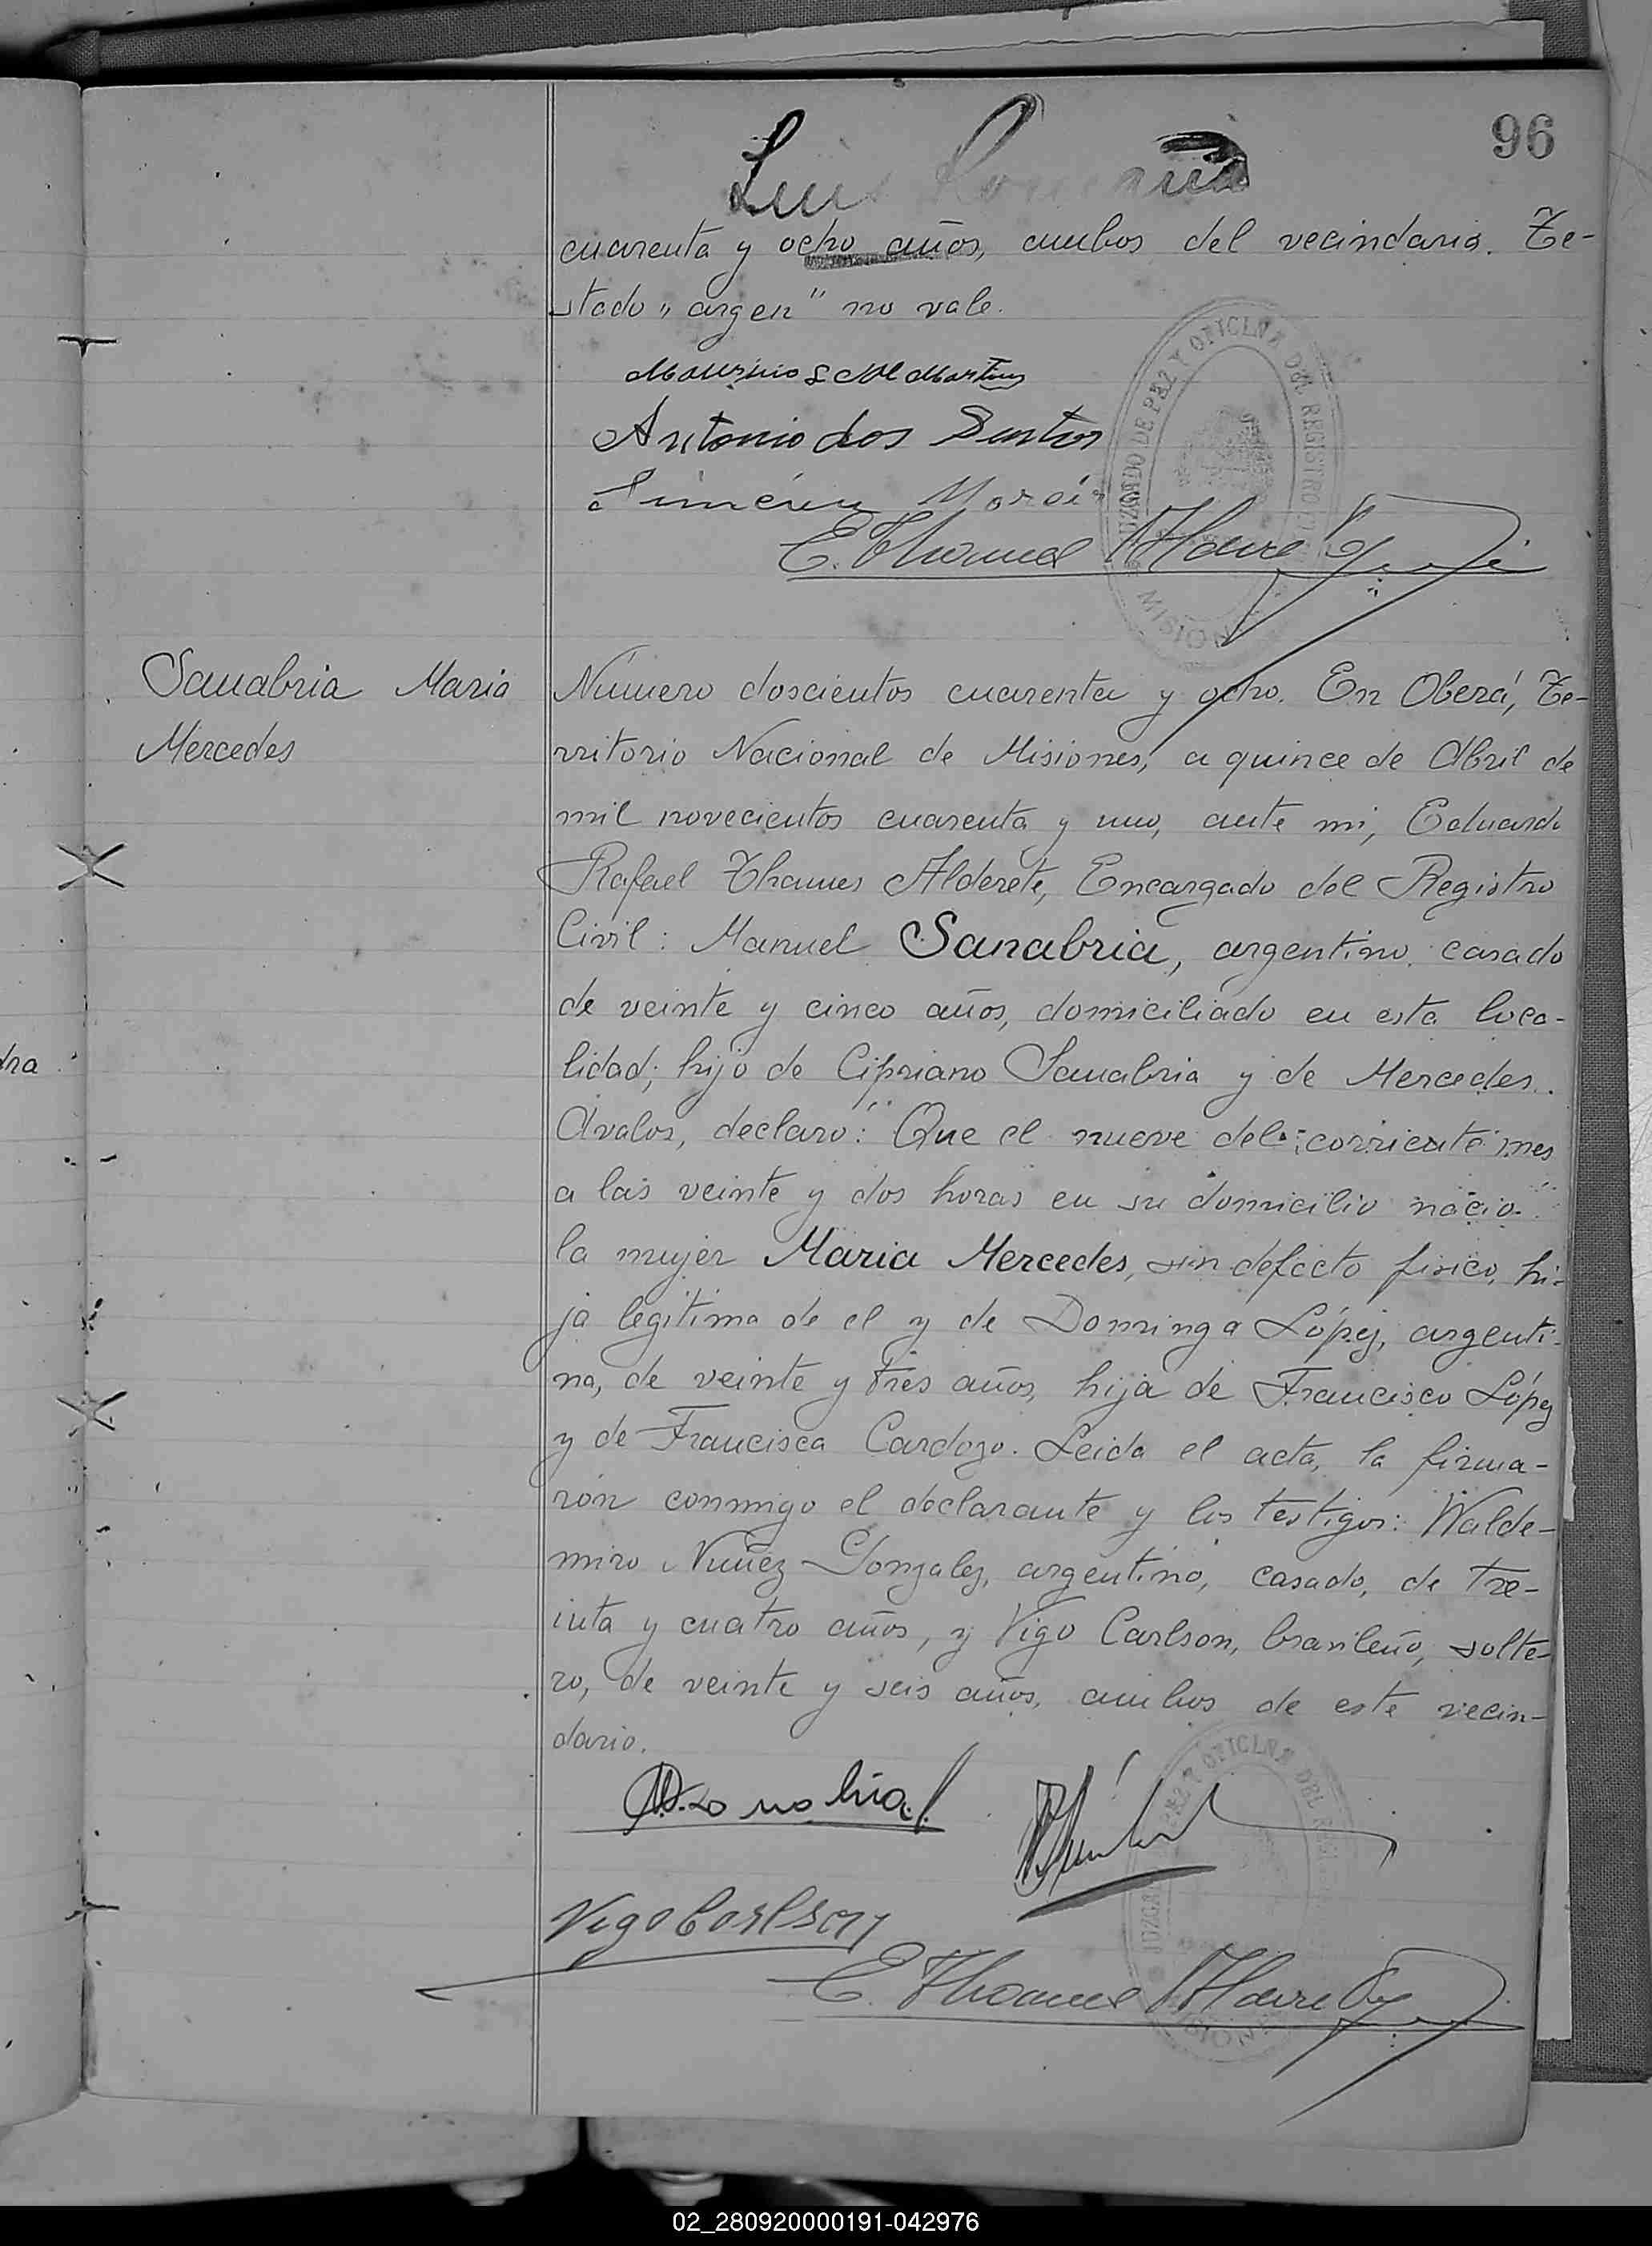 96
Luis
cuarenta y ocho años, ambos del vecindario. Te-
stado „ argen" no vale.
Antonio dos Santos
JUZGADO DE PAZ Y OFICINA DEL REGISTRO
MISIONES
Sanabria Maria
Mercedes
Número doscientos cuarenta y ocho. En Oberá, Te-
rritorio Nacional de Misiones, a quince de Abril de
mil novecientos cuarenta y uno, ante mi, Eduardo
Rafael Thames Alderete, Encargado del Registro
Civil: Manuel Sanabria, argentino, casado
de veinte y cinco años, domiciliado en esta loca-
lidad; hijo de Cipriano Sanabria y de Mercedes
Avalos, declaró: Que el nueve del corriente mes
a las veinte y dos horas en su domicilio nacio
la mujer Maria Mercedes, sin defecto fisico, hi-
ja legitima de el y de Dominga López, argenti-
na, de veinte y tres años, hija de Francisco López
y de Francisca Cardozo. Leida el acta, la firma-
rón conmigo el declarante y los testigos: Walde-
miro Nuñez Gonzalez, argentino, casado, de tre-
inta y cuatro años, y Vigo Carlson, brasileño, solte-
ro, de veinte y seis años, ambos de este vecin-
dario.
M. Sanabria
Vigo Carlson
E. Thames Alderete
dra
02_280920000191-042976